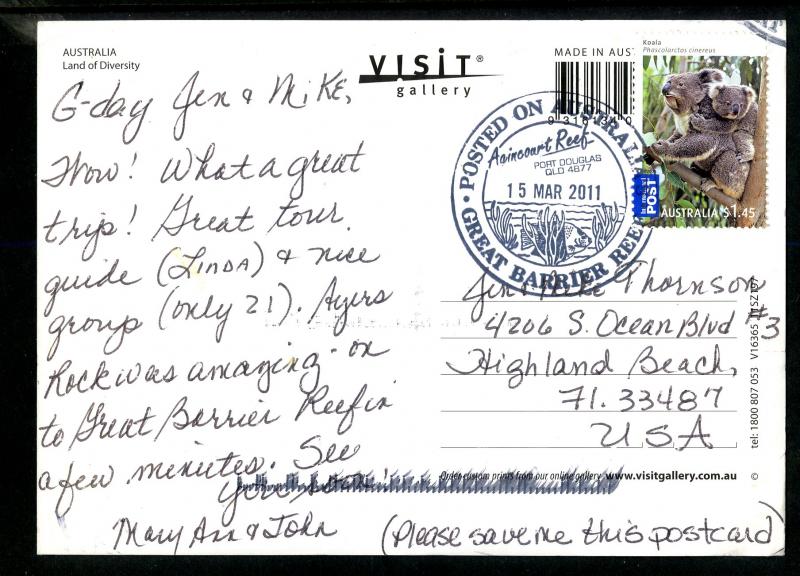 AUSTRALIA
Land of Diversity
VISIT®
gallery
MADE IN AUST
Koala
Phascolarctos cinereus
POST
AUSTRALIA $1.45
POSTED ON AUSTRALI
Agincourt Reef
PORT DOUGLAS
QLD 4877
15 MAR 2011
GREAT BARRIER REEF
G-day Jen & Mike,
Wow! What a great
trip! Great tour
guide (Linda) & nice
group (only 21). Ayers
Rock was amazing - on
to Great Barrier Reef in
a few minutes. See
you soon!
Mary Ann & John
(Please save me this postcard)
Jen & Mike Thornson
4206 S. Ocean Blvd #3
Highland Beach,
Fl. 33487
USA
Order custom prints from our online gallery www.visitgallery.com.au ©
tel: 1800 807 053 V16365